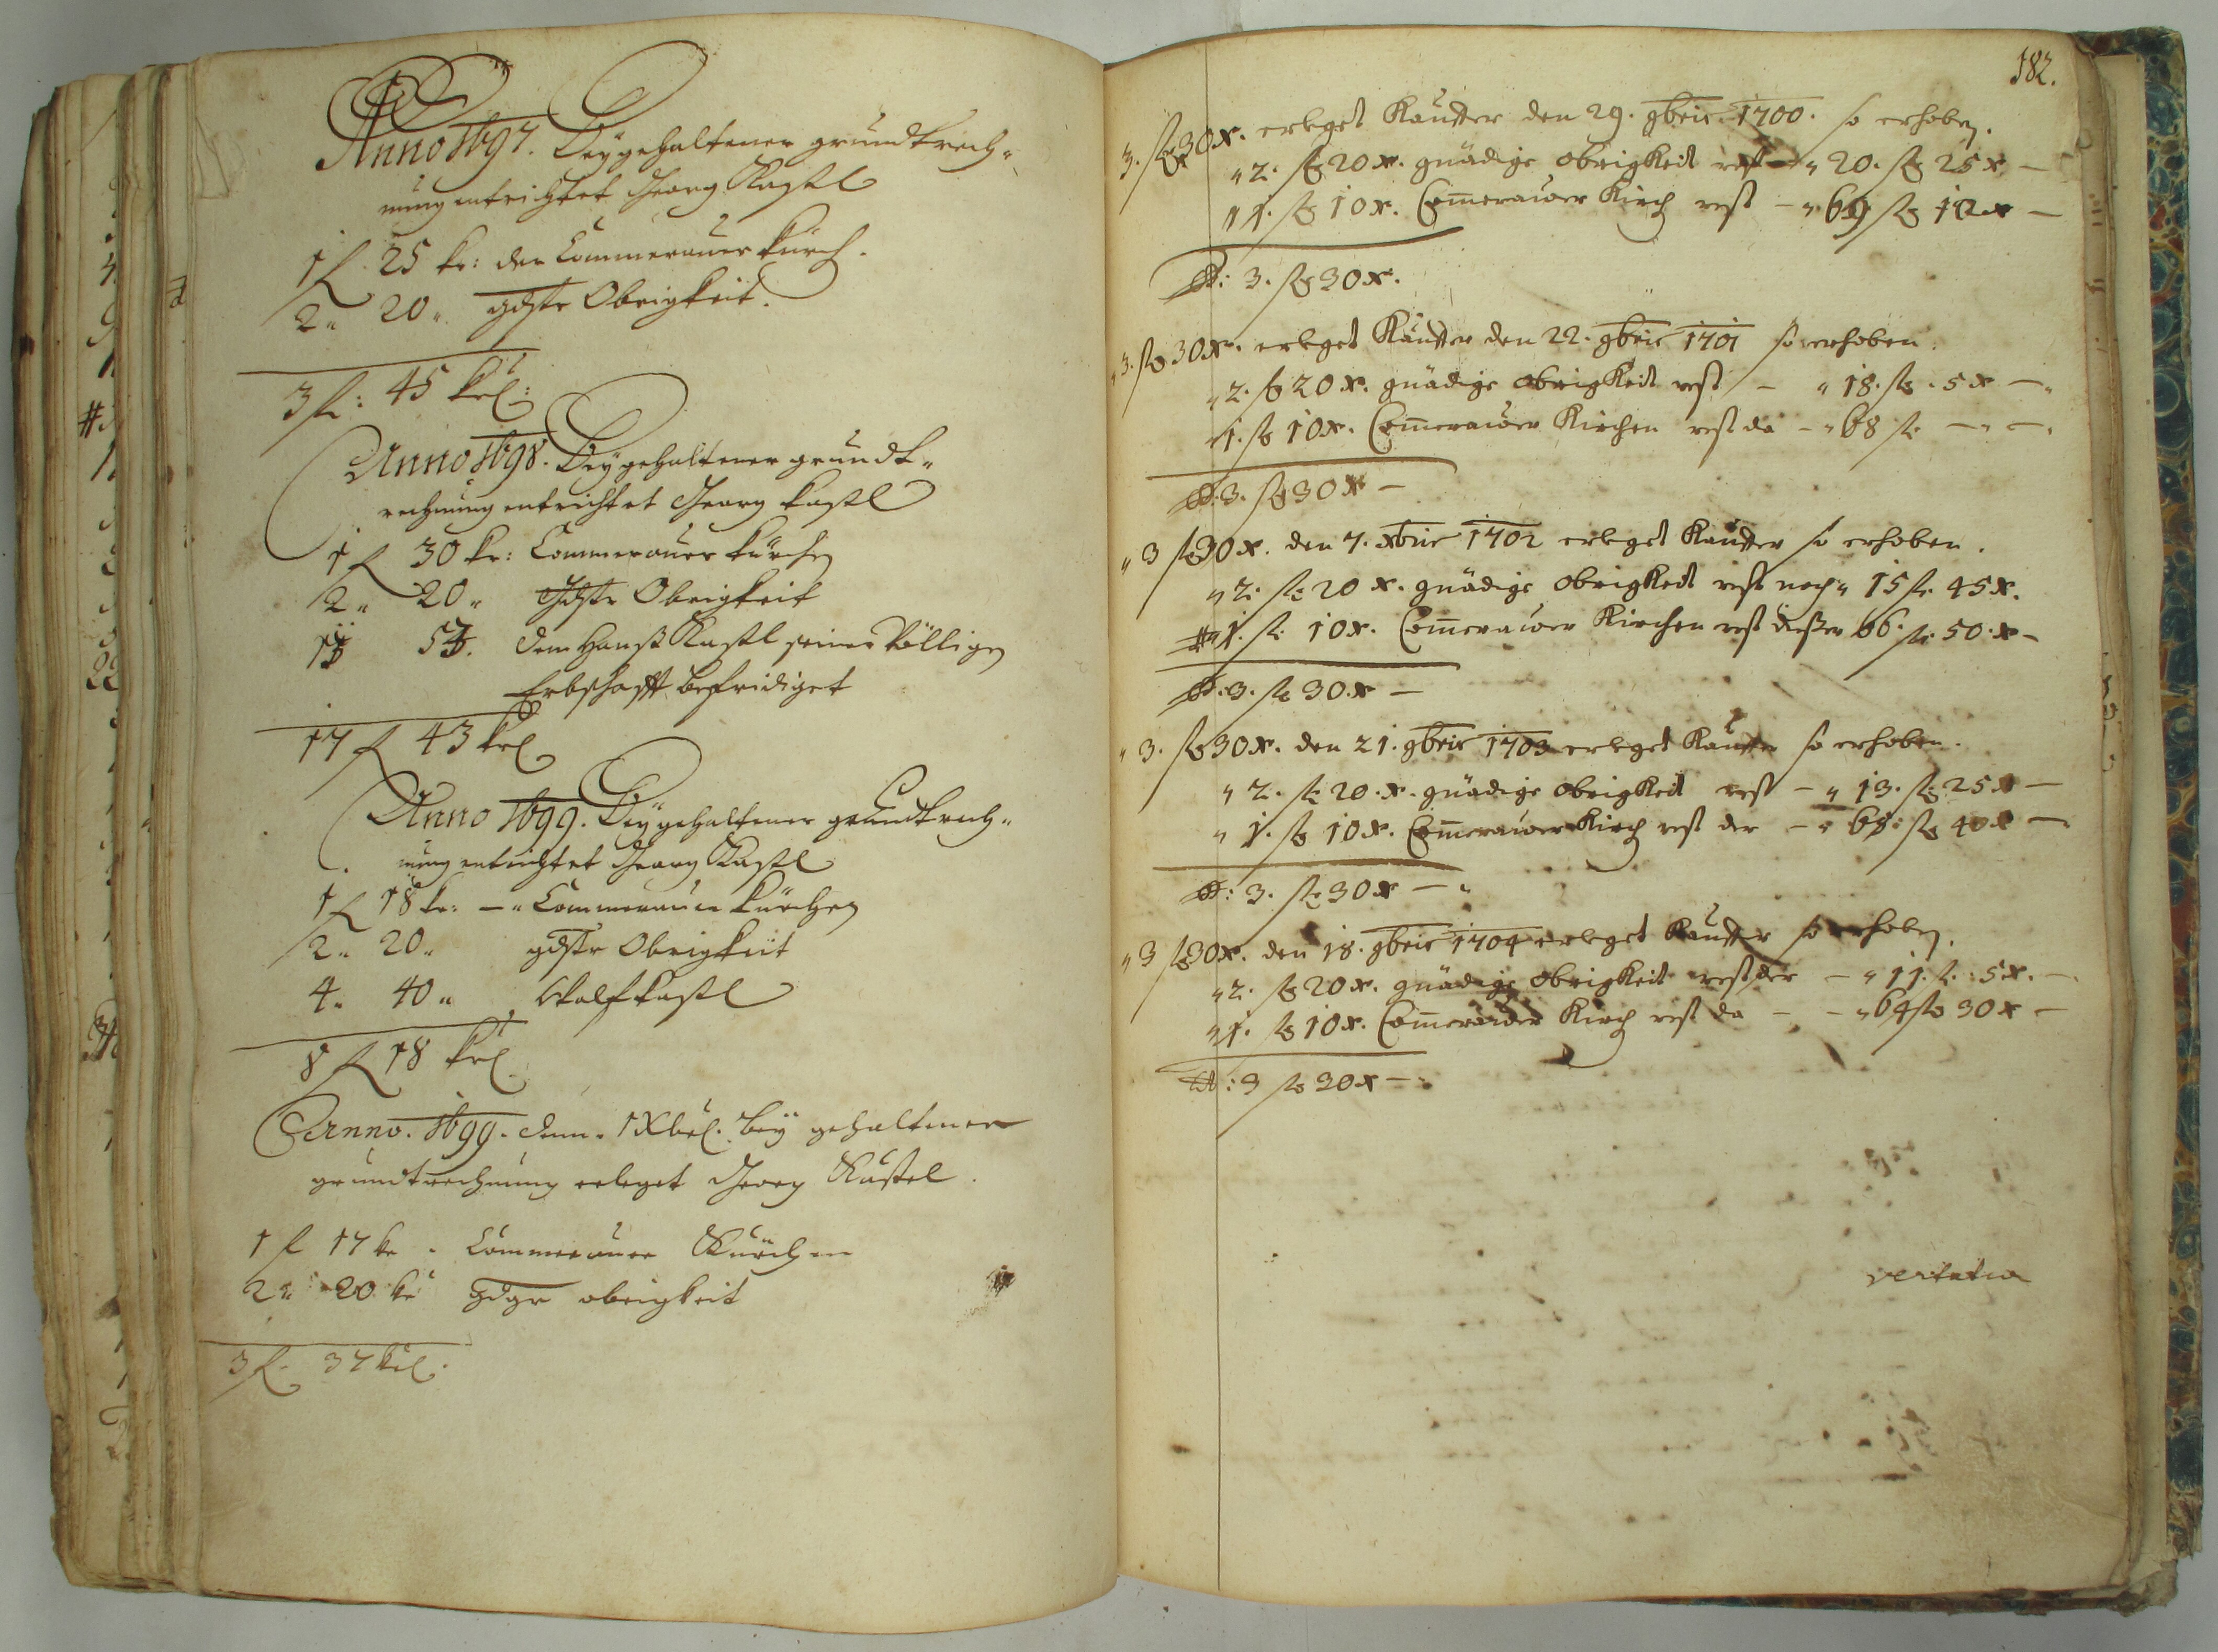 Anno 1697. Bey gehaltener grundtrech-
nung entrichtet Georg Kastl
1 f 25 kr: der Commerauer kürch.
2 " 20 " gdstr Obrigkeit.
3 fl: 45 krl:
Anno 1698. Bey gehaltener grundt-
rechnung entrichtet Georg Kastl
1 f 30 kr: Commerauer kürchen
2 " 20 " Gdstr Obrigkeit
13 53. dem Hanß Kastl seiner Völligen
Erbschafft befridiget
17 f 43 krl
Anno 1699. Bey gehaltener grundtrech-
nung entrichtet Georg Kastl
1 f 18 kr: — " Commerauer kürchen
2 " 20 " gdstr Obrigkeit
4 " 40 " Wolf Kastl
8 f 18 krl
Anno. 1699. denn. 1 Xbrl. bey gehaltener
grundtrechnung erleget Georg Kastel.
1 f 17 kr. Commerauer Kürchen
2 " 20 kr gdgr obrigkeit
3 f. 37 krl:
182.
3. fl 30 x. erleget Kauffer den 29. 9bris. 1700. so erhoben.
" 2. fl 20 x. gnädige obrigkeit rest — " 20. fl 25 x —
" 1. fl 10 x. Com̄erauer Kirch rest — " 69 fl 10 x —
: 3. fl 30 x.
" 3. fl 30 x. erleget Kauffer den 22. 9bris 1701 so erhoben.
" 2. fl 20 x. gnädige obrigkeit rest — " 18. fl. 5 x —
" 1. fl 10 x. Com̄erauer Kirchen rest da — " 68 fl — " — "
: 3. fl 30 x —
" 3 fl 30 x. den 7. xbris 1702 erleget Kauffer so erhoben.
" 2. fl 20 x. gnädige obrigkeit rest noch " 15 fl. 45 x.
" 1. fl. 10 x. Com̄erauer Kirchen rest dießer 66. fl 50. x —
: 3. fl 30. x —
" 3. fl 30 x. den 21. 9bris 1703 erleget Kauffer so erhoben.
" 2. fl 20. x. gnädige obrigkeit rest — " 13. fl 25 x —
" 1. fl 10 x. Com̄erauer Kirch rest der — " 65. fl 40 x —
: 3. fl 30 x — "
" 3 fl 30 x. den 18. 9bris 1704 erleget Kauffer so erhoben.
" 2. fl 20 x. gnädige obrigkeit rest der — " 11. fl. 5 x. —
" 1. fl 10 x. Com̄erauer Kirch rest da — — " 64 fl 30 x —
: 3 fl 30 x — "
vertatur